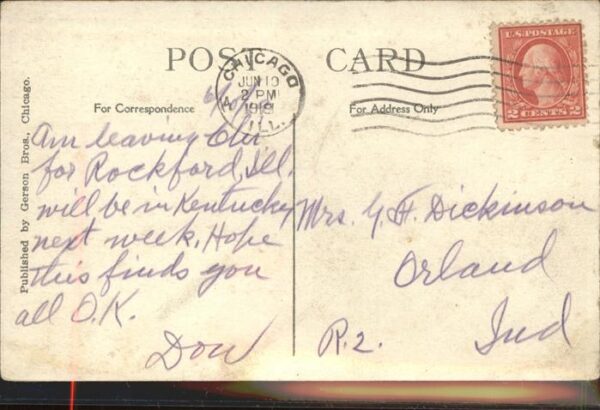 POST CARD
CHICAGO
JUN 10
2 PM
1919
ILL.
U.S. POSTAGE
2 CENTS 2
For Correspondence
For Address Only
Published by Gerson Bros., Chicago.
Am leaving Chi
for Rockford, Ill.
will be in Kentucky
next week, Hope
this finds you
all O.K.
Don
Mrs. G. H. Dickinson
Orland
R.2. Ind